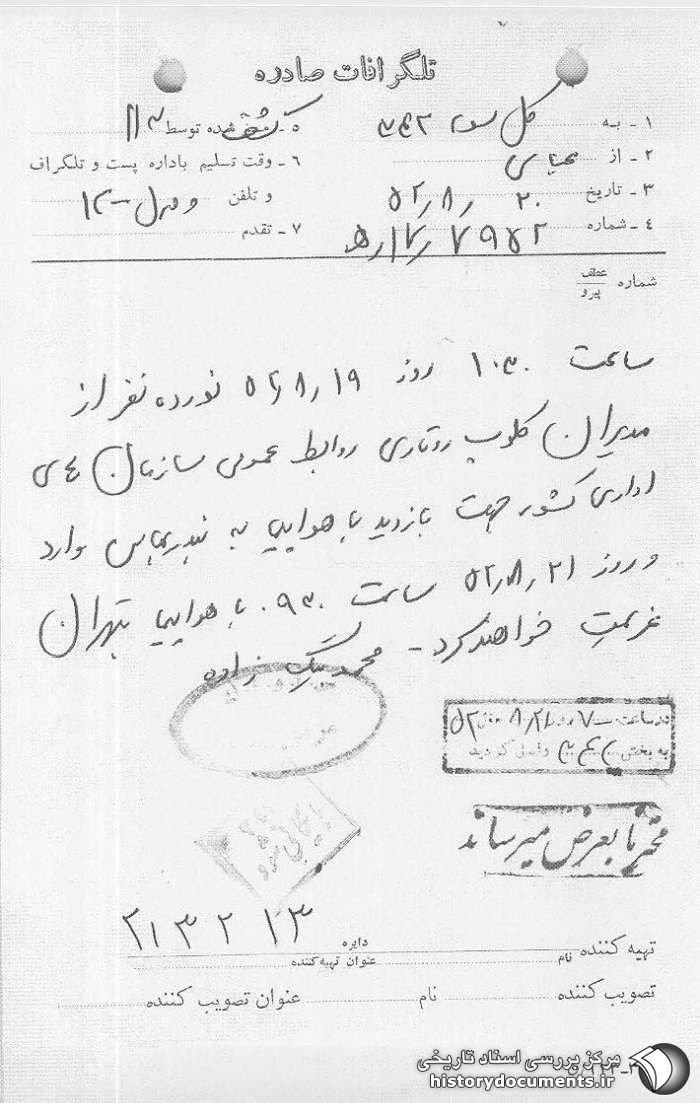 تلگرافات صادره
۱ - به کل سوم ۳۴۲
۲ - از عباسی
۳ - تاریخ ۲۰ / ۸ / ۵۲
۴ - شماره
۵ - کشف شده توسط
۶ - وقت تسلیم باداره پست و تلگراف
و تلفن
۷ - تقدم
شماره عطف
پیرو
ساعت ۱۰۳۰ روز ۱۹ / ۸ / ۵۲ نوزده نفر از
مدیران کلوپ روتاری روابط عمومی سازمان های
اداری کشور جهت بازدید با هواپیما به بندرعباس وارد
و روز ۲۱ / ۸ / ۵۲ ساعت ۰۹۳۰ با هواپیما بتهران
عزیمت خواهند کرد - محمد بیگ زاده
در ساعت ۷ روز ۸/۲۱ سال ۵۲
به بخش ۳۴۲ واصل گردید
بایگانی شود
محترما بعرض میرساند
۲۱ ۳ ۲ ۱۳
تهیه کننده نام دایره
عنوان تهیه کننده
تصویب کننده نام عنوان تصویب کننده
مرکز بررسی اسناد تاریخی
historydocuments.ir